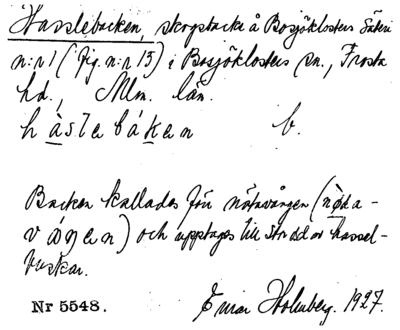 Hasslebacken, skogsbacke å Bosjöklosters Säteri
n:r 1 (Fig. n:r 15) i Bosjöklosters sn., Frosta
hd., Mlm. län.
hàslebáken b.
Backen kallades förr nötvången (nøda-
váŋen) och upptages till stor del av hassel-
buskar.
Nr 5548. Einar Holmberg. 1927.